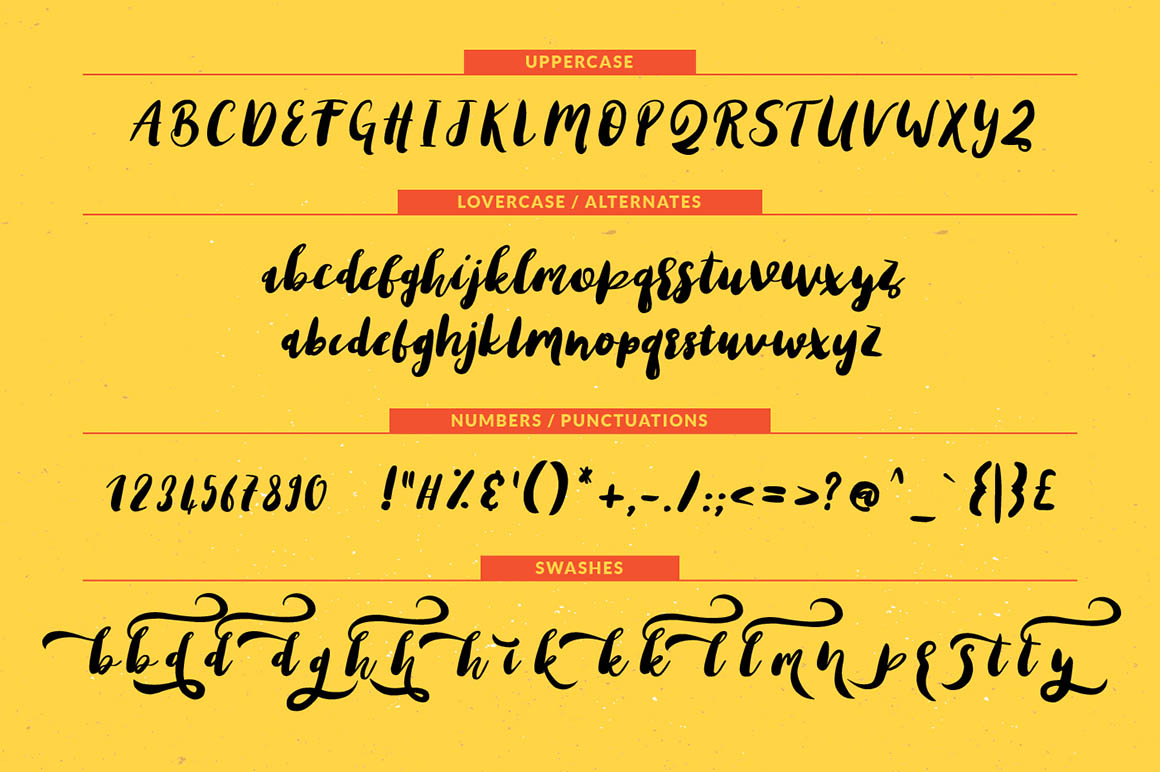 UPPERCASE
ABCDEFGHIJKLMOPQRSTUVWXYZ
LOVERCASE / ALTERNATES
abcdefghijklmopqrstuvwxyz
abcdefghjklmnopqrstuvwxyz
NUMBERS / PUNCTUATIONS
1234567890 !"H%&'()*+,-./:;<=>?@^_`{|}£
SWASHES
bbdddghhhikkkllmnpqstty